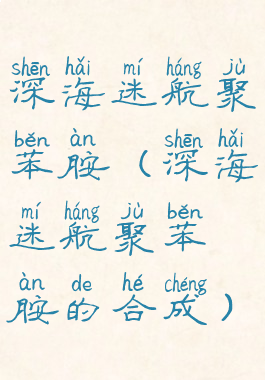 shēn hǎi mí háng jù
深海迷航聚
běn àn shēn hǎi
苯胺(深海
mí háng jù běn
迷航聚苯
àn de hé chéng
胺的合成)